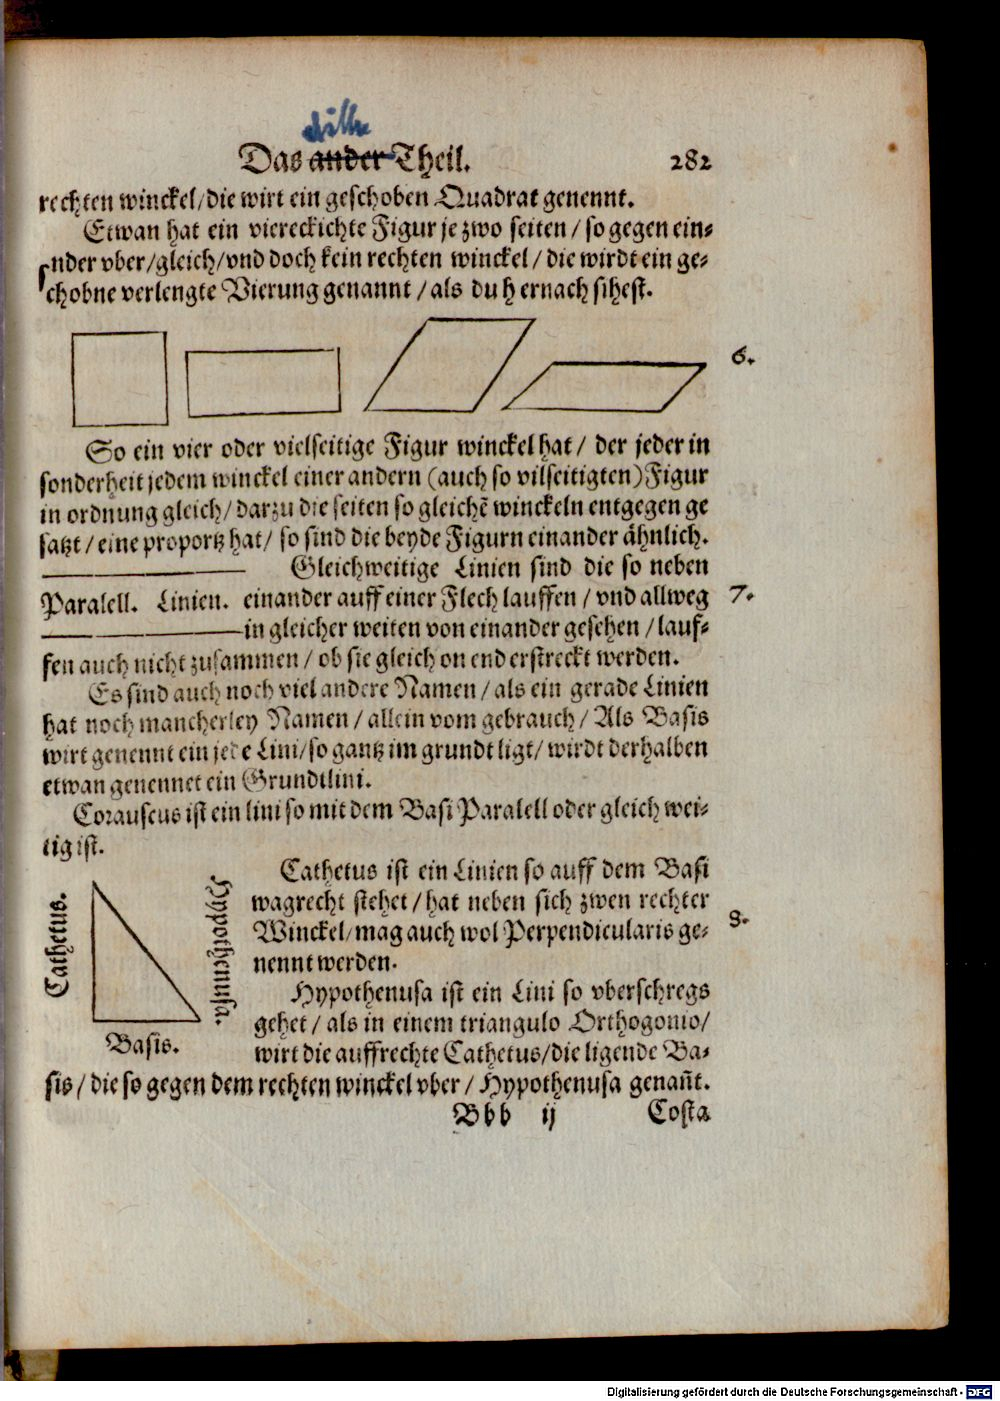 dritte
Das ander Theil. 282
rechten winckel/die wirt ein geschoben Quadrat genennt.
Etwan hat ein viereckichte Figur je zwo seiten / so gegen ein⸗
nder vber/gleich/vnd doch kein rechten winckel / die wirdt ein ge⸗
schobne verlengte Vierung genannt / als du hernach sihest.
6.
So ein vier oder vielseitige Figur winckel hat / der jeder in
sonderheit jedem winckel einer andern (auch so vilseitigten) Figur
in ordnung gleich / darzu die seiten so gleichẽ winckeln entgegen ge
satzt / eine proportz hat / so sind die beyde Figurn einander ähnlich.
Gleichweitige Linien sind die so neben
Paralell. Linien. einander auff einer Flech lauffen / vnd allweg 7.
in gleicher weiten von einander gesehen / lauf⸗
fen auch nicht zusammen / ob sie gleich on end erstreckt werden.
Es sind auch noch viel andere Namen / als ein gerade Linien
hat noch mancherley Namen / allein vom gebrauch / Als Basis
wirt genennt ein jede Lini/so gantz im grundt ligt / wirdt derhalben
etwan genennet ein Grundtlini.
Corauscus ist ein lini so mit dem Basi Paralell oder gleich wei⸗
tig ist.
Cathetus ist ein Linien so auff dem Basi
wagrecht stehet / hat neben sich zwen rechter
Winckel/mag auch wol Perpendicularis ge⸗ 8.
nennt werden.
Cathetus.
Hypothenusa.
Basis.
Hypothenusa ist ein Lini so vberschregs
gehet / als in einem triangulo Orthogonio/
wirt die auffrechte Cathetus/die ligende Ba⸗
sis / die so gegen dem rechten winckel vber / Hypothenusa genañt.
Bbb ij Costa
Digitalisierung gefördert durch die Deutsche Forschungsgemeinschaft - DFG